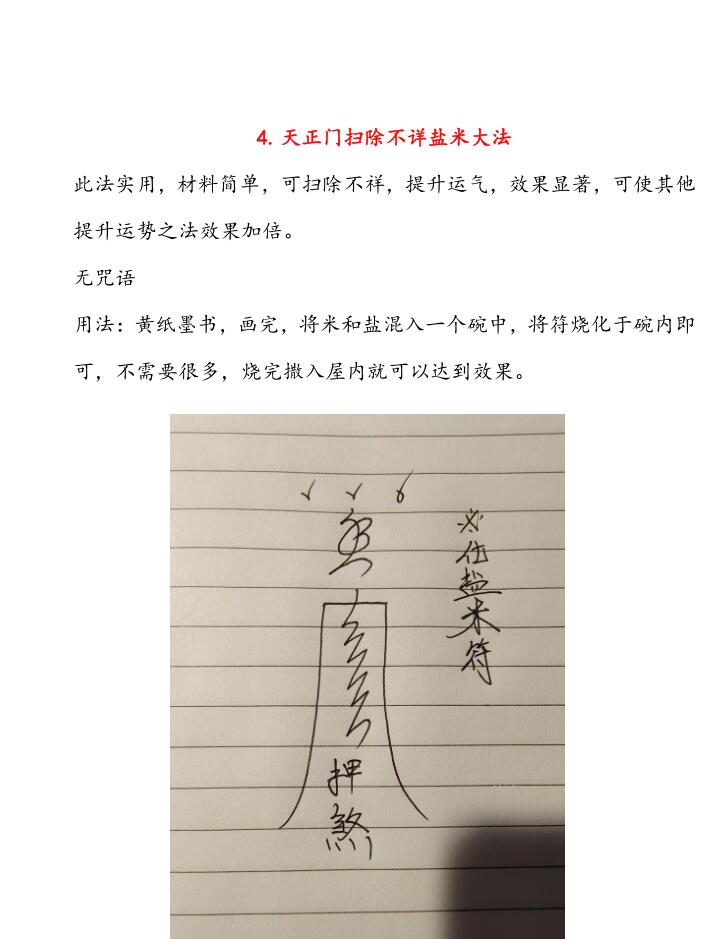 4. 天正门扫除不详盐米大法
此法实用，材料简单，可扫除不祥，提升运气，效果显著，可使其他
提升运势之法效果加倍。
无咒语
用法：黄纸墨书，画完，将米和盐混入一个碗中，将符烧化于碗内即
可，不需要很多，烧完撒入屋内就可以达到效果。
盐米符
押煞